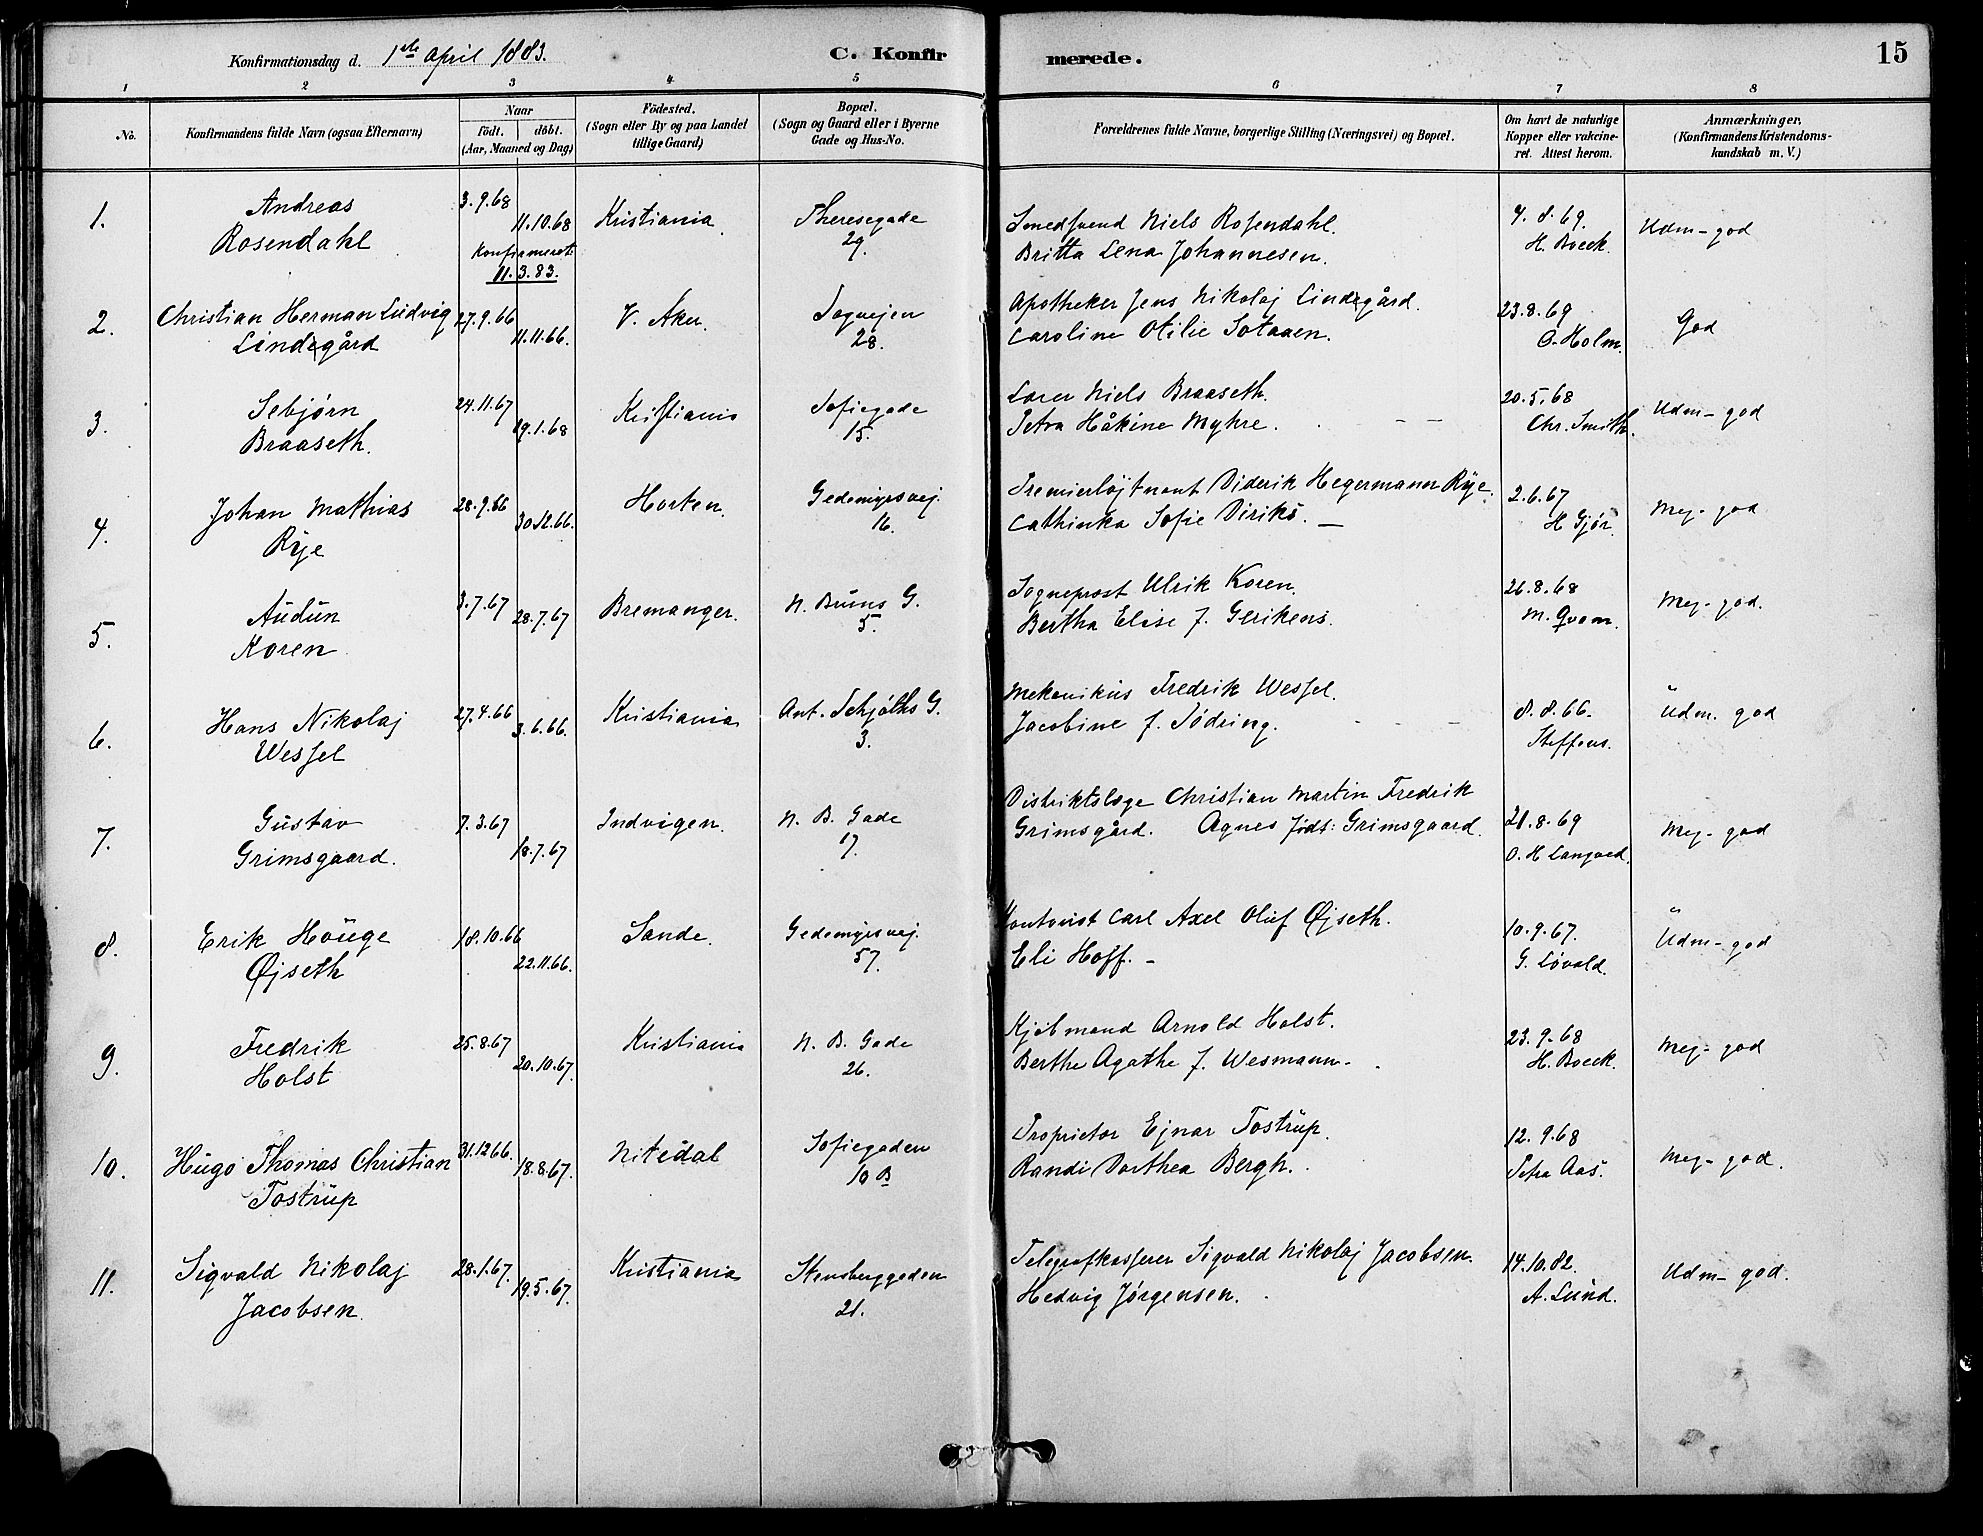 Konfirmationsdag d. 1ste April 1883. C. Konfirmerede. 15
1 2 3 4 5 6 7 8
No.
Konfirmandens fulde Navn (ogsaa Efternavn)
Naar
födt. döbt.
(Aar, Maaned og Dag)
Födested.
(Sogn eller By og paa Landet
tillige Gaard)
Bopæl.
(Sogn og Gaard eller i Byerne
Gade og Hus-No.
Forældrenes fulde Navne, borgerlige Stilling (Næringsvei) og Bopæl.
Om havt de naturlige
Kopper eller vakcine-
ret. Attest herom.
Anmærkninger.
(Konfirmandens Kristendoms-
kundskab m. V.)
1. Andreas 3.9.68 11.10.68 Kristiania Theresegade Smedsvend Niels Rosendahl. 8.69 Udm-god
Rosendahl Konfirmeret 29. Britta Lena Johannesen. H. Boeck
11.3.83.
2. Christian Herman Ludvig 27.9.66 11.11.66. V. Aker. Sognvejen Apotheker Jens Nikolaj Lindegård. 23.8.69 God
Lindegård 28. Caroline Otilie O. Holm.
3. Sebjørn 24.11.67 19.1.68 Kristiania Sofiegade Lærer Niels Braaseth. 20.5.68 Udm-god
Braaseth. 15. Petra Håkine Myhre. Chr. Smith.
4. Johan Mathias 28.9.66 30.12.66. Horten. Gedemyrsvej. Premierløjtnant Diderik Hegermann Rye. 2.6.67 Meg-god
Rye 16. Cathinka Sofie Diriks. — H. Gjør.
5. Audun 3.7.67 28.7.67 Bremanger. N. Bruns G. Sogneprest Ulrik Koren. 26.8.68 Meg-god.
Koren 5. Bertha Elise f. Gerikens. M. Qvam.
6. Hans Nikolaj 27.4.66 3.6.66. Kristiania Ant. Schjøths G. Mekanikus Fredrik Wessel. 8.8.66. Udm. god
Wessel 3. Jacobine f. Södring. Steffens.
7. Gustav 7.3.67 18.7.67 Indvigen. N. B. Gade Distriktslæge Christian Martin Fredrik 21.8.69 Meg-god
Grimsgaard. 17. Grimsgård. Agnes født: Grimsgaard. O. H. Langved.
8. Erik Houge 18.10.66 22.11.66. Sande. Gedemyrsvej. Kontorist Carl Axel Oluf Øjseth. 10.9.67. Udm-god
Øjseth 57. Eli Hoff. - G. Løvald.
9. Fredrik 25.8.67 20.10.67. Kristiania N. B. Gade Kjøbmand Arnold Holst. 23.9.68 Meg-god
Holst 26. Berthe Agathe f. Wesmann- H. Boeck.
10. Hugo Thomas Christian 31.12.66. 18.8.67. Nitedal Sofiegaden Proprietær Ejnar Tostrup. 12.9.68 Meg-god.
Tostrup 10 B Randi Dorthea Bergh. Petra Aas.
11. Sigvald Nikolaj 28.1.67. 19.5.67. Kristiania Stensberggaden Telegrafkasserer Sigvald Nikolaj Jacobsen. 14.10.82. Udm-god.
Jacobsen. 21. Hedvig Jørgensen. A. Lund.